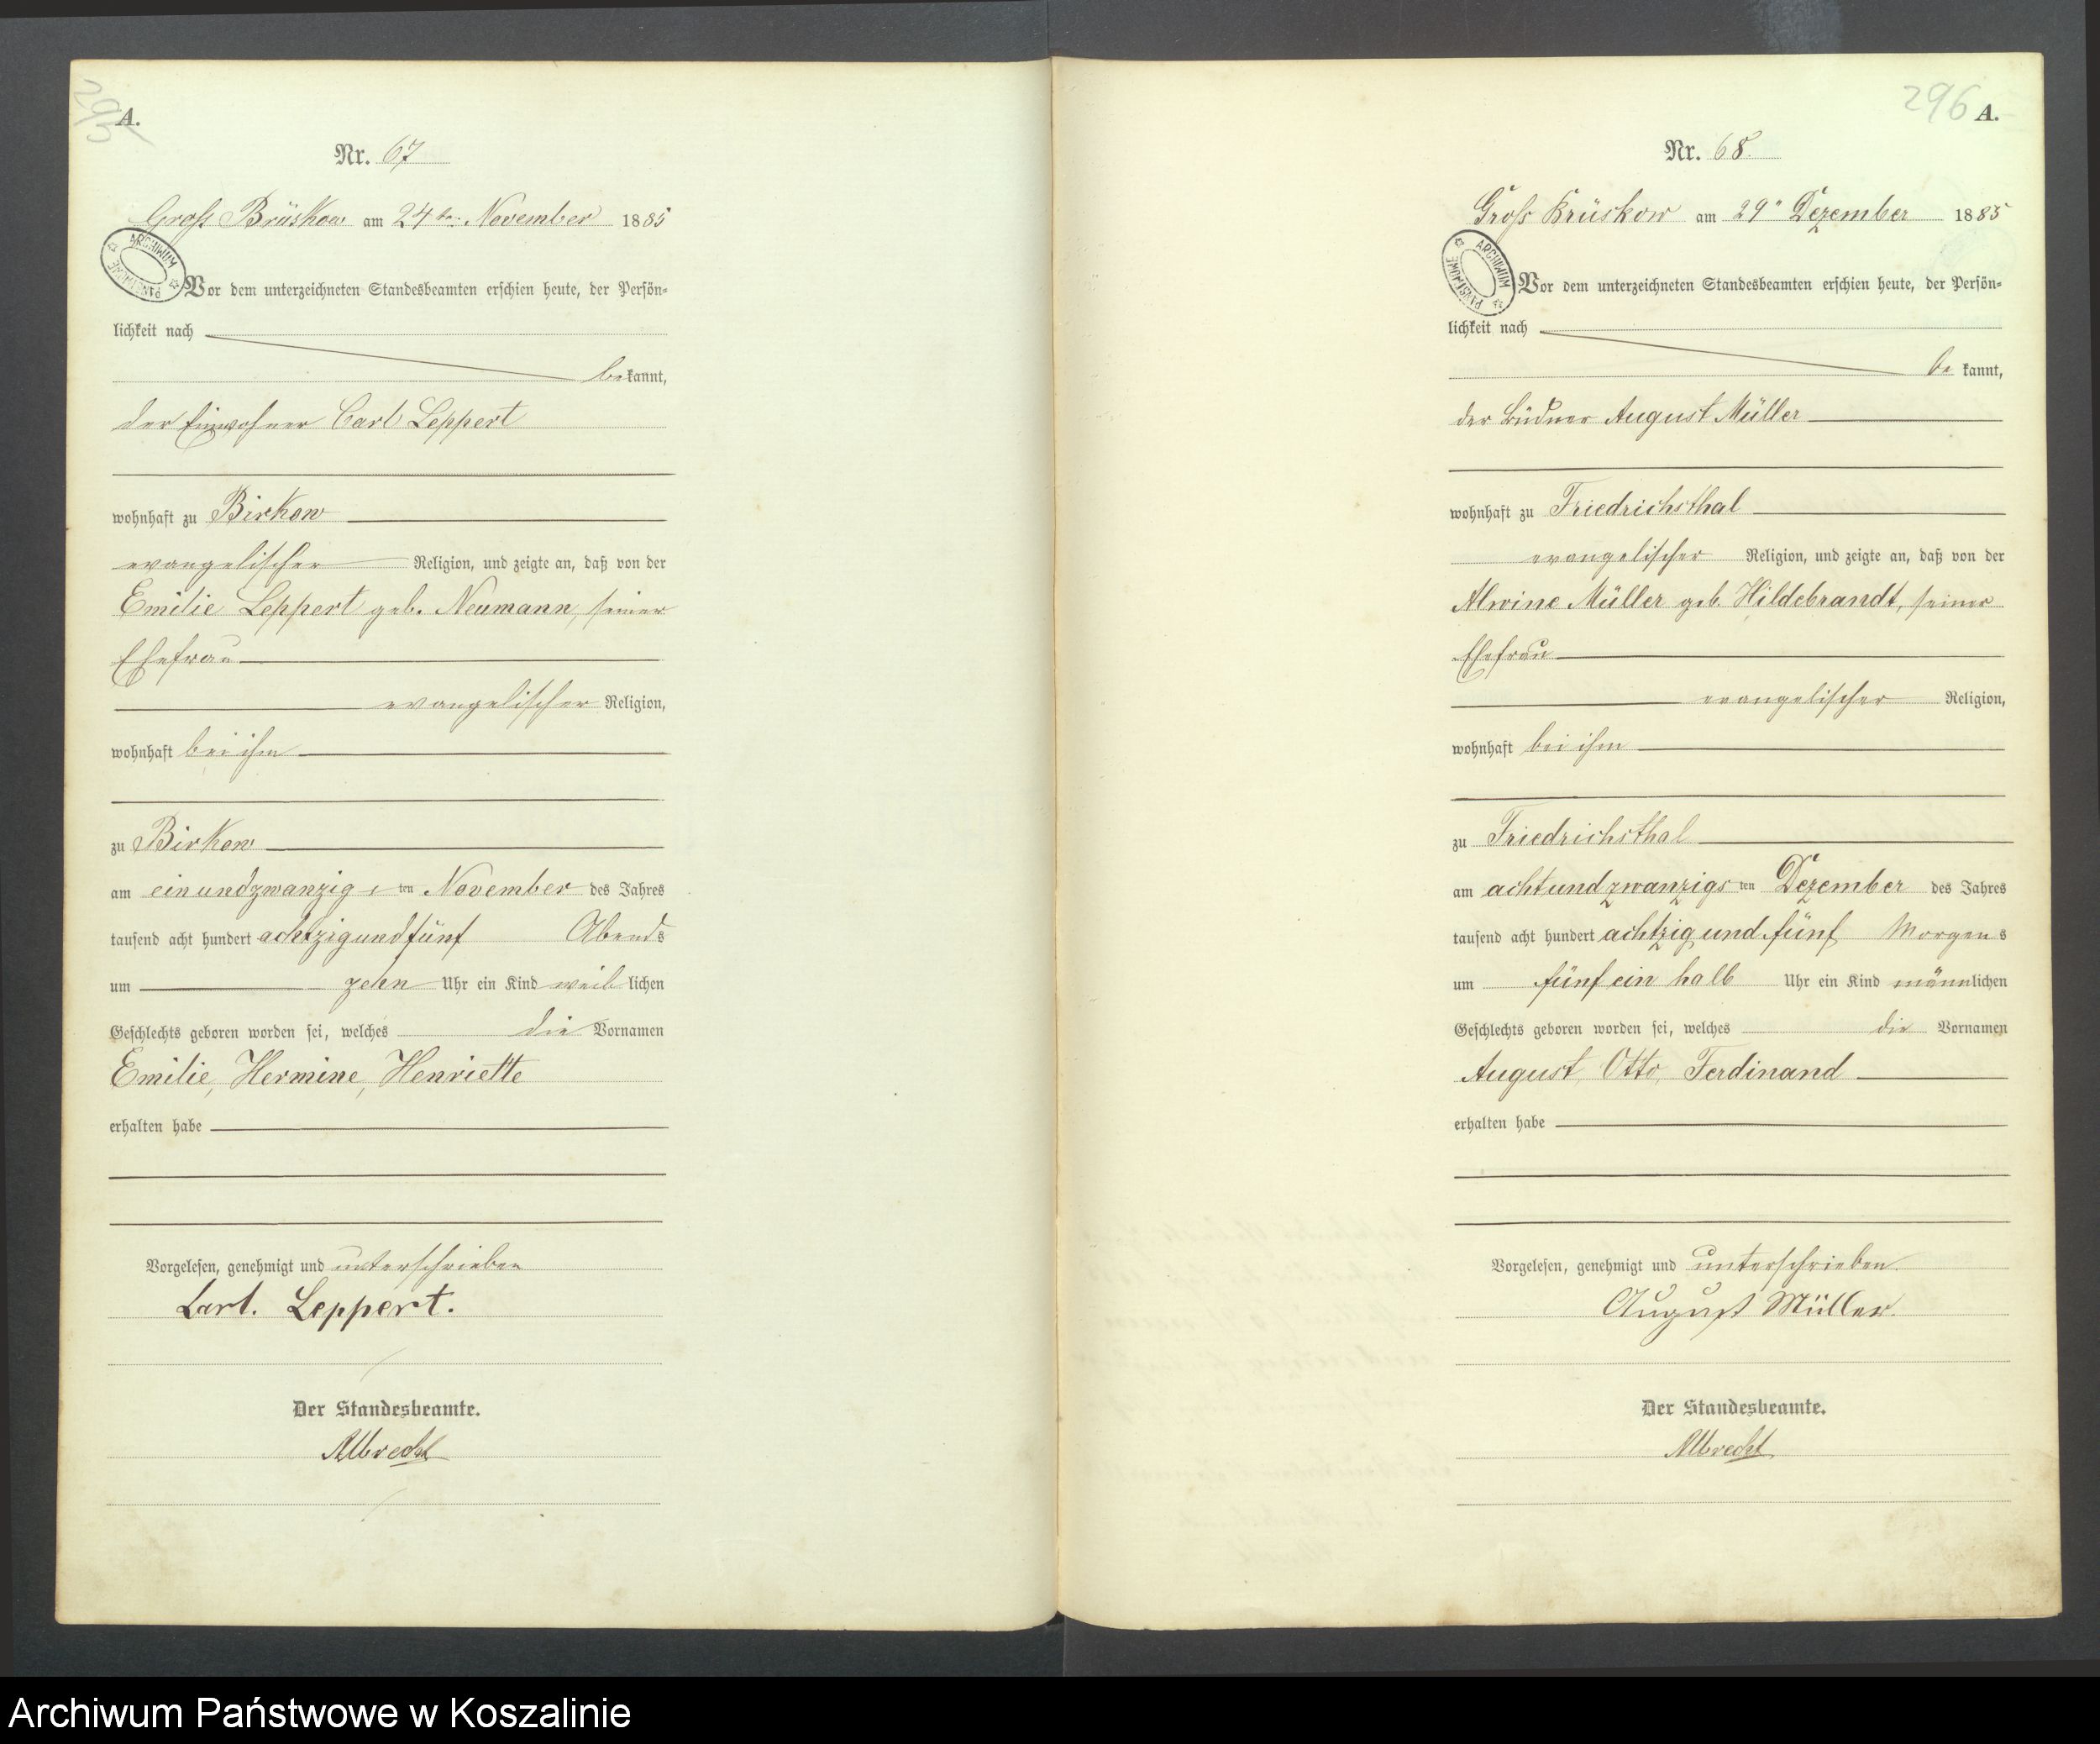 295
A.
Nr. 67
Groß Brüskow am 24ten November 1885
ARCHIWUM PAŃSTWOWE
Vor dem unterzeichneten Standesbeamten erschien heute, der Persön-
lichkeit nach
bekannt,
der Einwohner Carl Leppert
wohnhaft zu Birkow
evangelischer Religion, und zeigte an, daß von der
Emilie Leppert geb. Neumann, seiner
Ehefrau
evangelischer Religion,
wohnhaft bei ihm
zu Birkow
am einundzwanzig sten November des Jahres
tausend acht hundert achtzigundfünf Abends
um zehn Uhr ein Kind weiblichen
Geschlechts geboren worden sei, welches die Vornamen
Emilie, Hermine, Henriette
erhalten habe
Vorgelesen, genehmigt und unterschrieben
Carl. Leppert.
Der Standesbeamte.
Albrecht
296 A.
Nr. 68.
Groß Brüskow am 29" Dezember 1885
ARCHIWUM PAŃSTWOWE
Vor dem unterzeichneten Standesbeamten erschien heute, der Persön-
lichkeit nach
bekannt,
der Büdner August Müller
wohnhaft zu Friedrichsthal
evangelischer Religion, und zeigte an, daß von der
Alwine Müller geb. Hildebrandt, seiner
Ehefrau
evangelischer Religion,
wohnhaft bei ihm
zu Friedrichsthal
am achtundzwanzigsten Dezember des Jahres
tausend acht hundert achtzig und fünf Morgens
um fünf ein halb Uhr ein Kind männlichen
Geschlechts geboren worden sei, welches die Vornamen
August, Otto, Ferdinand
erhalten habe
Vorgelesen, genehmigt und unterschrieben.
August Müller.
Der Standesbeamte.
Albrecht
Archiwum Państwowe w Koszalinie